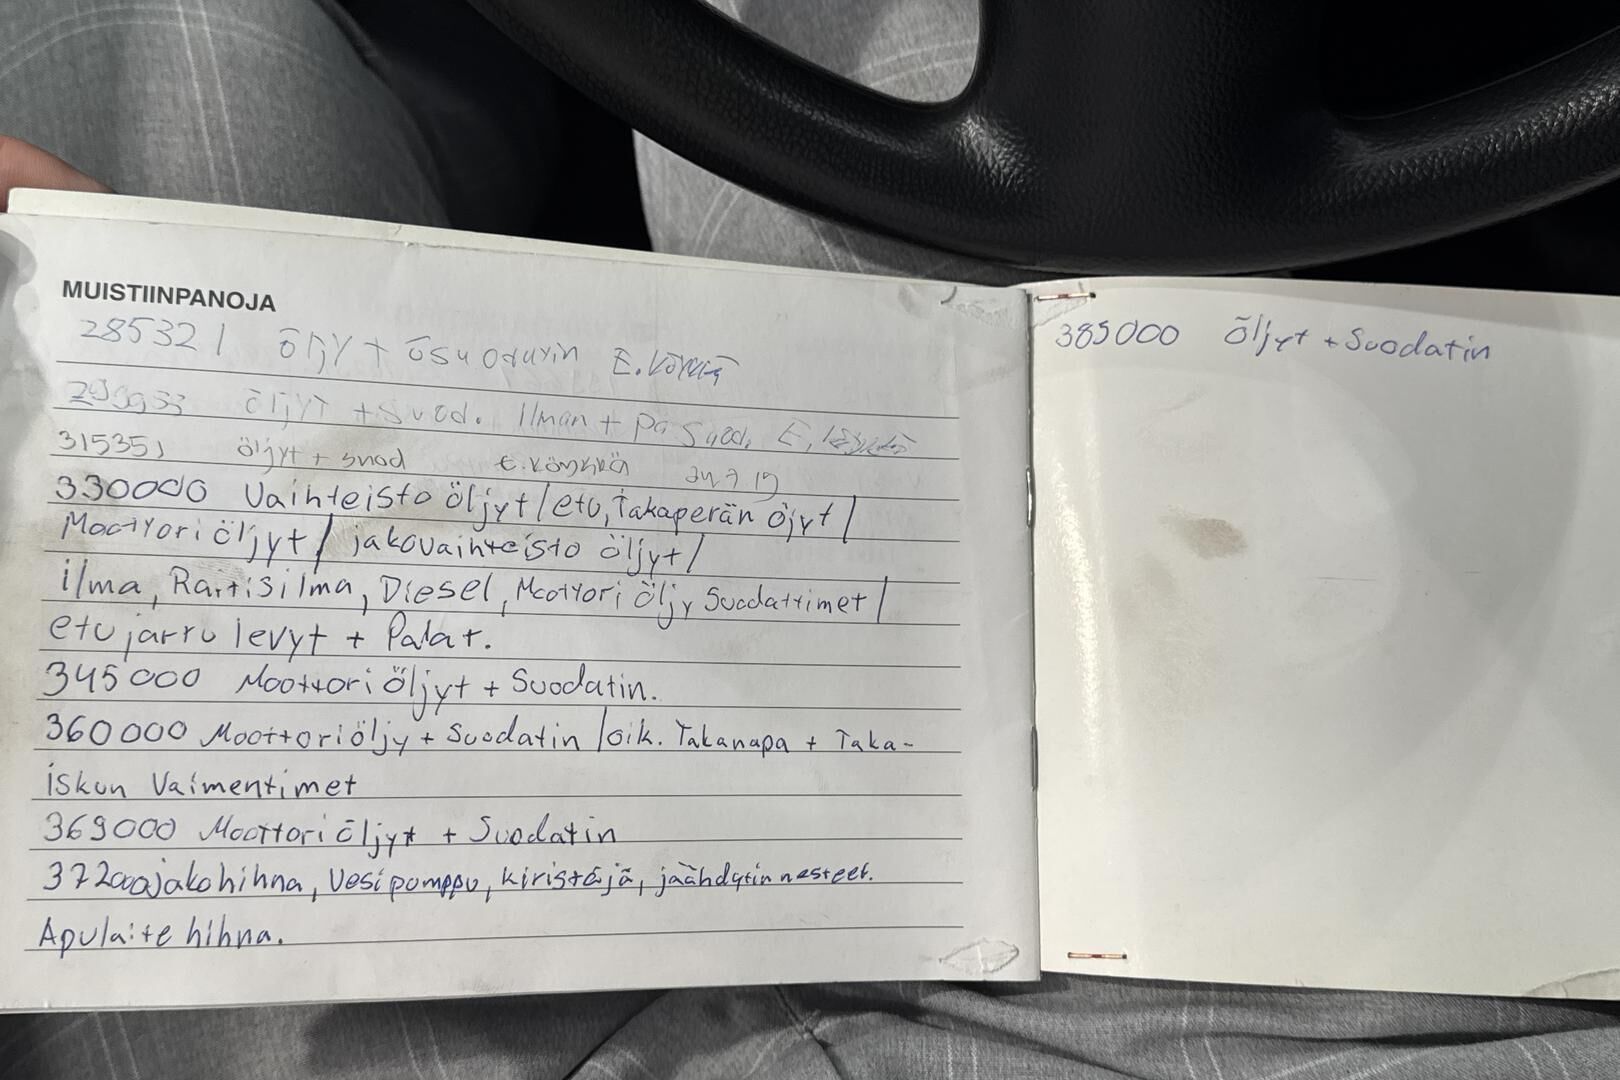 MUISTIINPANOJA
285321 öljy + ösuodatin E.
öljyt + suod. Ilman + Pa suod. E.
315351 öljyt + suod E. Köykkä 24.7.19
330000 Vaihteisto öljyt / etu, Takaperän öjyt /
Moottori öljyt / jakovaihteisto öljyt /
ilma, Raitisilma, Diesel, Moottori öljy Suodattimet /
etujarru levyt + Palat.
345000 Moottori öljyt + Suodatin.
360000 Moottoriöljy + Suodatin / oik. Takanapa + Taka-
iskun Vaimentimet
369000 Moottori öljyt + Suodatin
372000 jakohihna, Vesipomppu, kiristäjä, jäähdytin nesteet.
Apulaite hihna.
385000 Öljyt + Suodatin